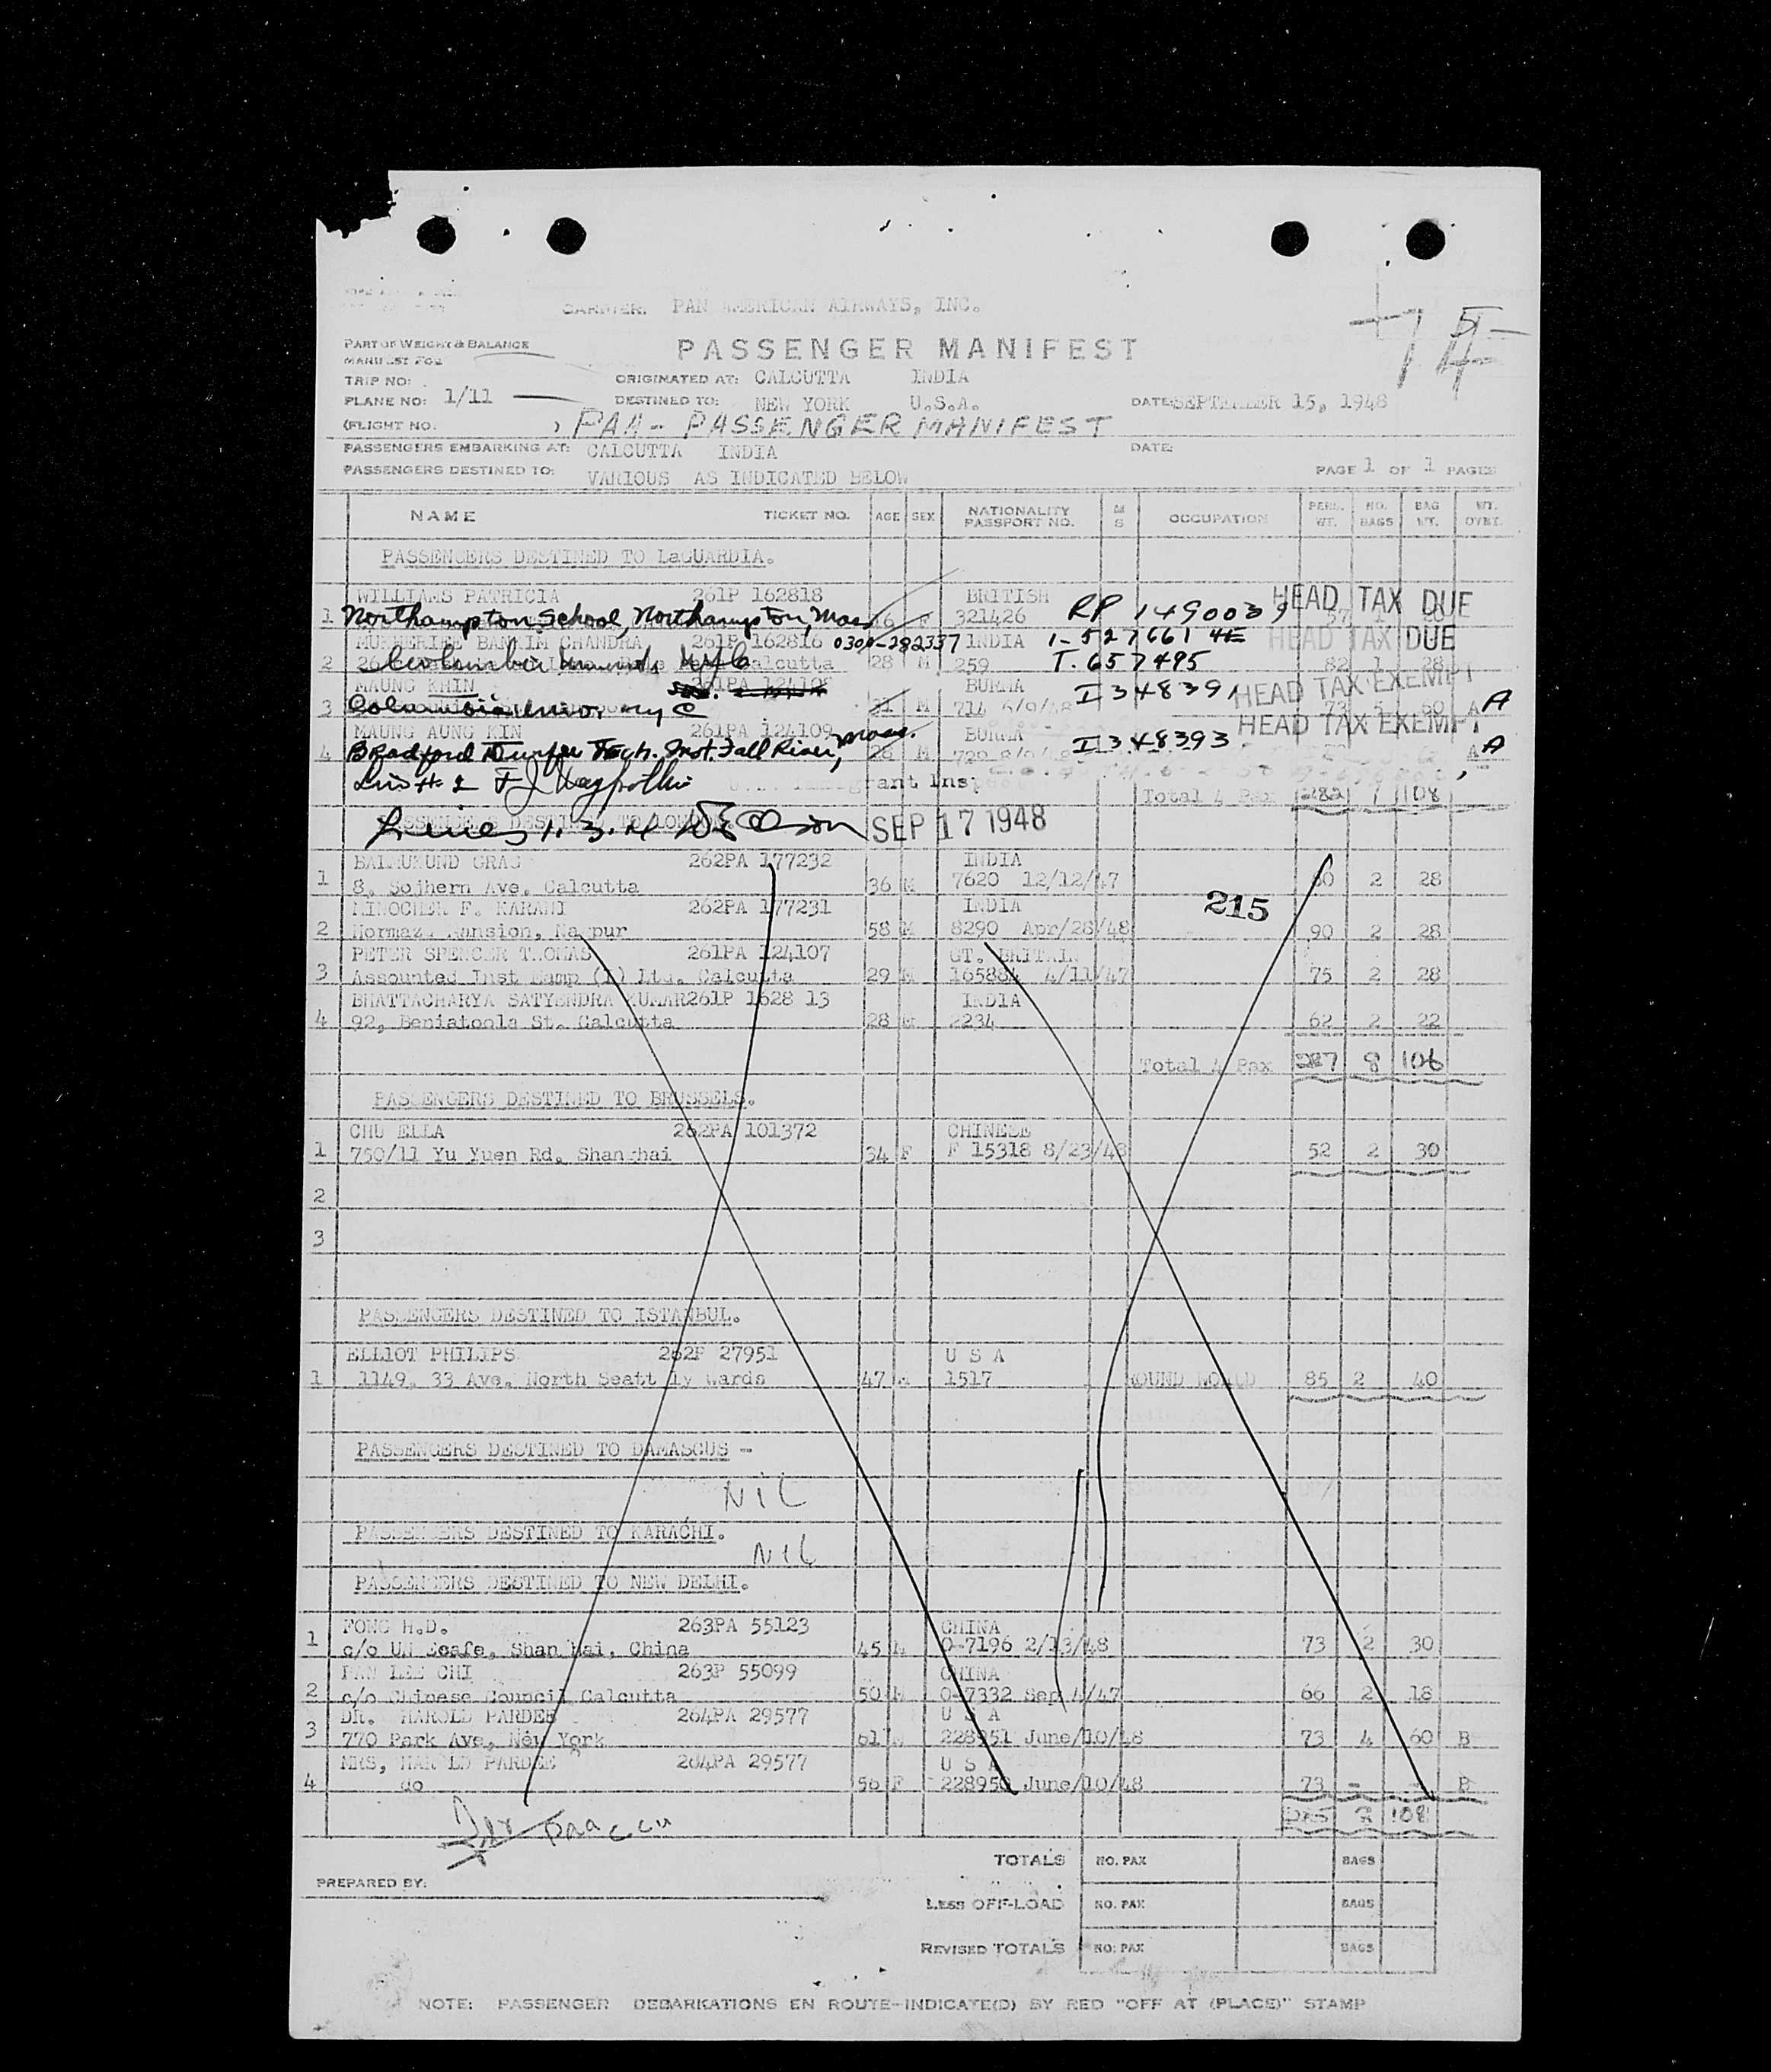 CARRIER: PAN AMERICAN AIRWAYS, INC.
PART OF WEIGHT & BALANCE
MANIFEST FOR
PASSENGER MANIFEST
75
TRIP NO:
ORIGINATED AT: CALCUTTA INDIA
PLANE NO: 1/11
DESTINED TO: NEW YORK U.S.A.
DATE: SEPTEMBER 15, 1948
(FLIGHT NO. ) PAA - PASSENGER MANIFEST
PASSENGERS EMBARKING AT: CALCUTTA INDIA DATE:
PASSENGERS DESTINED TO: VARIOUS AS INDICATED BELOW PAGE 1 OF 1 PAGES
NAME TICKET NO. AGE SEX NATIONALITY PASSPORT NO. M S OCCUPATION PERS. WT. NO. BAGS BAG WT. WT. OVBT.
PASSENGERS DESTINED TO LaGUARDIA.
WILLIAMS PATRICIA 261P 162818 BRITISH HEAD TAX DUE
1 Northampton School, Northampton, Mass 16 F 321426 RP 1490039 57 1
MUKHERJEE BANKIM CHANDRA 261P 162816 0300-282337 INDIA 1-527661 4E HEAD TAX DUE
2 Columbia NYC Calcutta 28 M 259 T. 657495 82 1 28
MAUNG KHIN 261PA 124108 BURMA I 34839 HEAD TAX EXEMPT
3 Columbia Univ. NYC 31 M 714 73 5 60 A A
MAUNG AUNG KIN 261PA 124109 BURMA I348393 HEAD TAX EXEMPT
4 Bradford Durfee Tech. Inst. Fall River, Mass. 26 M A A
Line # 2 F J
Immigrant Insp
Total 4 Pax 282 108
PASSENGERS DESTINED TO LONDON
Lines 1. 3. 4 Olson SEP 17 1948
BALMUKUND GRAS 262PA 177232 INDIA
1 8, Sojhern Ave. Calcutta 36 M 7620 12/12/47 60 2 28
215
MINOCHER F. KARANI 262PA 177231 INDIA
2 Mansion, Nagpur 58 M 8290 Apr/28/48 90 2 28
PETER SPENCER THOMAS 261PA 124107 GT. BRITAIN
3 Assounted Inst Lamp (I) Ltd. Calcutta 29 M 165884 4/11/47 75 2 28
BHATTACHARYA SATYENDRA KUMAR 261P 1628 13 INDIA
4 92, Beniatoola St. Calcutta 28 M 2234 62 2 22
Total 4 Pax 287 8 106
PASSENGERS DESTINED TO BRUSSELS.
CHU ELLA 262PA 101372 CHINESE
1 750/11 Yu Yuen Rd. Shanghai 34 F F 15318 8/23/48 52 2 30
2
3
PASSENGERS DESTINED TO ISTANBUL.
ELLIOT PHILIPS 262P 27951 U S A
1 1149, 33 Ave. North Seatt ly Wards 47 M 1517 ROUND WORLD 85 2 40
PASSENGERS DESTINED TO DAMASCUS -
NIL
PASSENGERS DESTINED TO KARACHI.
NIL
PASSENGERS DESTINED TO NEW DELHI.
FONG H.D. 263PA 55123 CHINA
1 c/o UN Ecafe, Shanghai, China 45 M O-7196 2/13/48 73 2 30
PAN LEE CHI 263P 55099 CHINA
2 c/o Chinese Council Calcutta 50 M O-7332 Sep 4/47 66 2 18
DR. HAROLD PARDEE 264PA 29577 U S A
3 770 Park Ave, New York 61 M 228951 June/10/48 73 4 60 B
MRS, HAROLD PARDEE 264PA 29577 U S A
4 do 56 F 228950 June/10/48 73 - - B
285 8 108
PAA CCU
TOTALS NO. PAX BAGS
PREPARED BY:
LESS OFF-LOAD NO. PAX BAGS
REVISED TOTALS NO. PAX BAGS
NOTE: PASSENGER DEBARKATIONS EN ROUTE-INDICATE(D) BY RED "OFF AT (PLACE)" STAMP